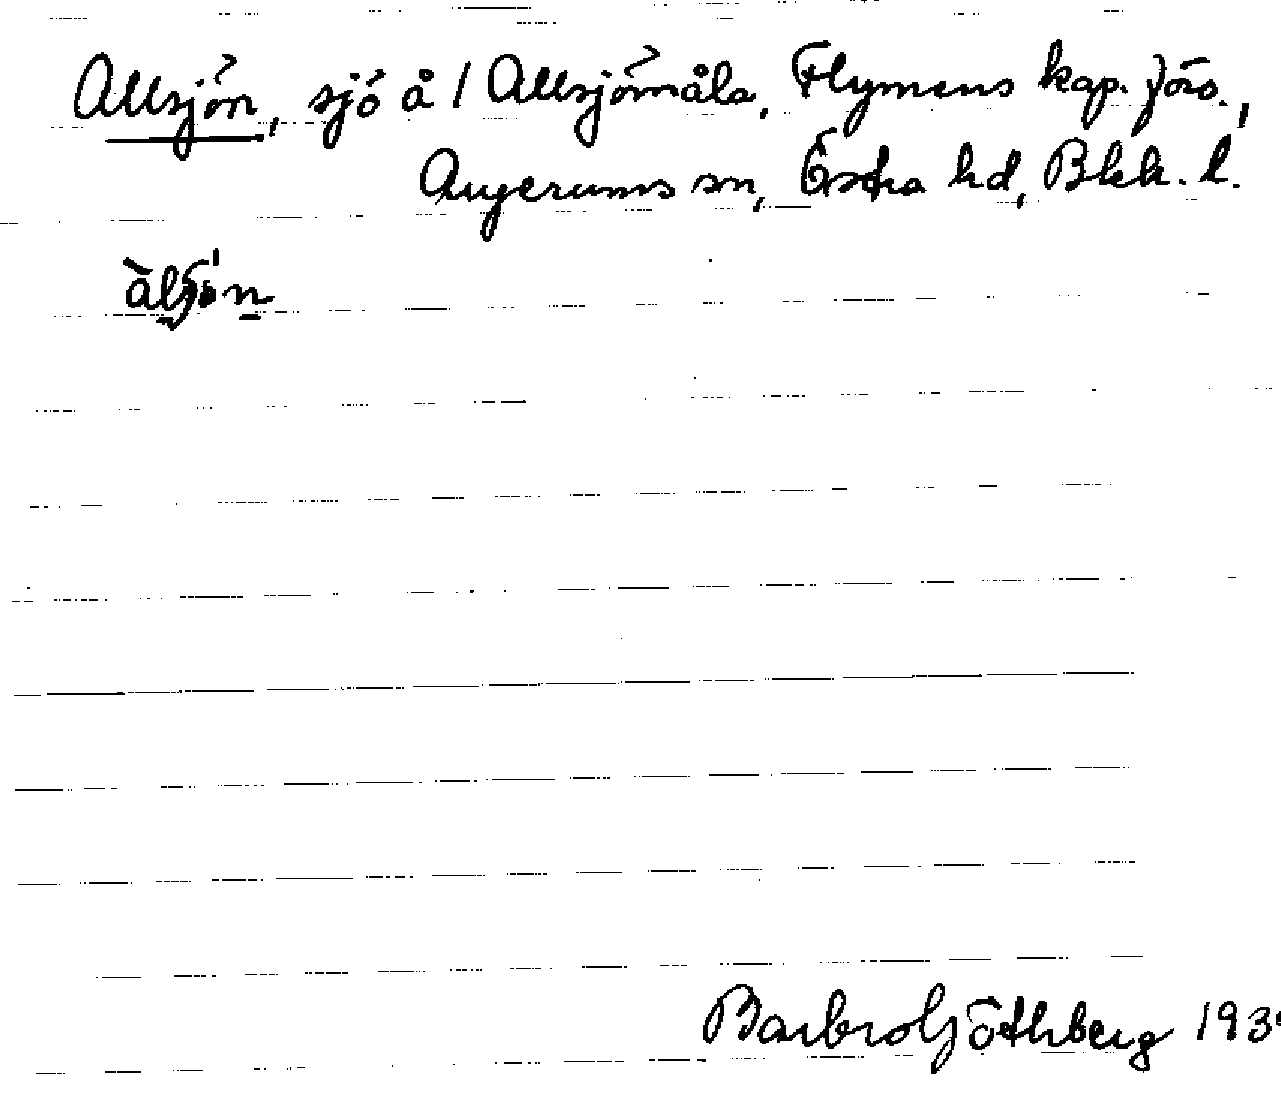 Allsjön, sjö å 1 Allsjömåla, Flymens kap. förs.,
Augerums sn, Östra hd, Blek. l.
Barbro Göthberg 193